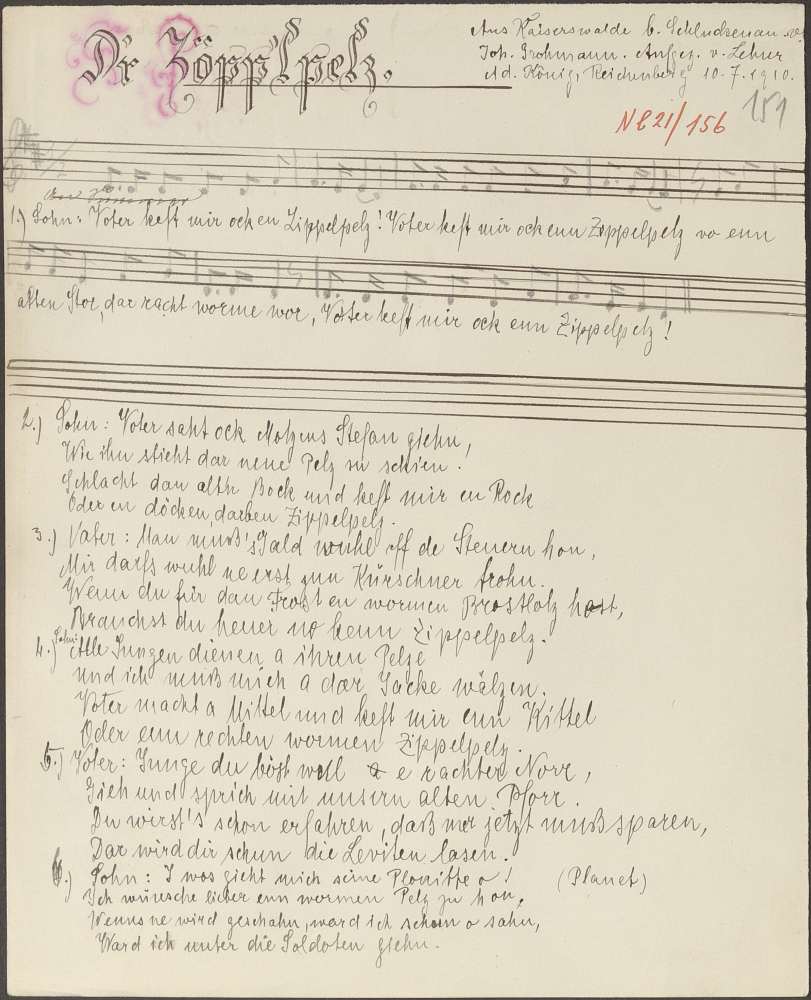 Dr Zöppl pelz.
Aus Kaiserswalde b. Schluckenau
Joh. Grohmann. Aufgez. v. Lehrer
Ad. König, Reichenberg 10.7.1910.
151
NC21/156
1.) Sohn: Voter keft mir ock en Zippelpelz! Voter keft mir ock enn Zippelpelz vo enn
alten Stor, dar racht worme wor, Voter keft mir ock enn Zippelpelz!
2.) Sohn: Voter saht ock Motzens Stefan giehn,
Wie ihn stieht dar neue Pelz su schien!
Schlacht dan alth Bock und keft mir en Rock
Oder en döcken, darben Zippelpelz.
3.) Vater: Man muß's Gald wuhl off de Steuern hon,
Mir darfs wuhl ne erst zun Kürschner trohn.
Wenn du für dan Frost en wormen Brostlotz host,
Brauchst du heuer no kenn Zippelpelz.
4.) Sohn: Alle Jungen dienen a ihren Pelze
und ich muß mich a dar Jacke wälzen.
Voter macht a Mittel und keft mir enn Kittel
Oder enn rechten wormen Zippelpelz.
5.) Voter: Junge du böst woll e rachter Norr,
Gieh und sprich mit unsern alten Pforr.
Du wirst's schon erfahren, daß mer jetzt muß sparen,
Dar wird dir schun die Leviten lasen.
6.) Sohn: I wos gieht mich seine Plonitte o! (Planet)
Ich wünsche lieber enn wormen Pelz zu hon,
Wenns ne wird geschahn, ward ich schon o sahn,
Ward ich unter die Soldoten giehn.